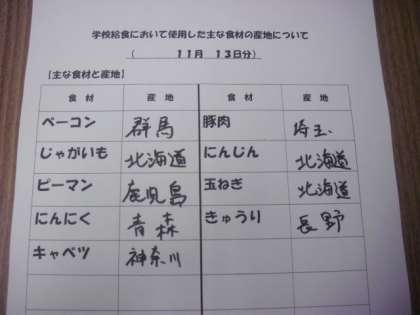 学校給食において使用した主な食材の産地について
(　　１１月　１３日分)
【主な食材と産地】
食　材　産　地　食　材　産　地
ベーコン　群馬　豚肉　埼玉
じゃがいも　北海道　にんじん　北海道
ピーマン　鹿児島　玉ねぎ　北海道
にんにく　青森　きゅうり　長野
キャベツ　神奈川